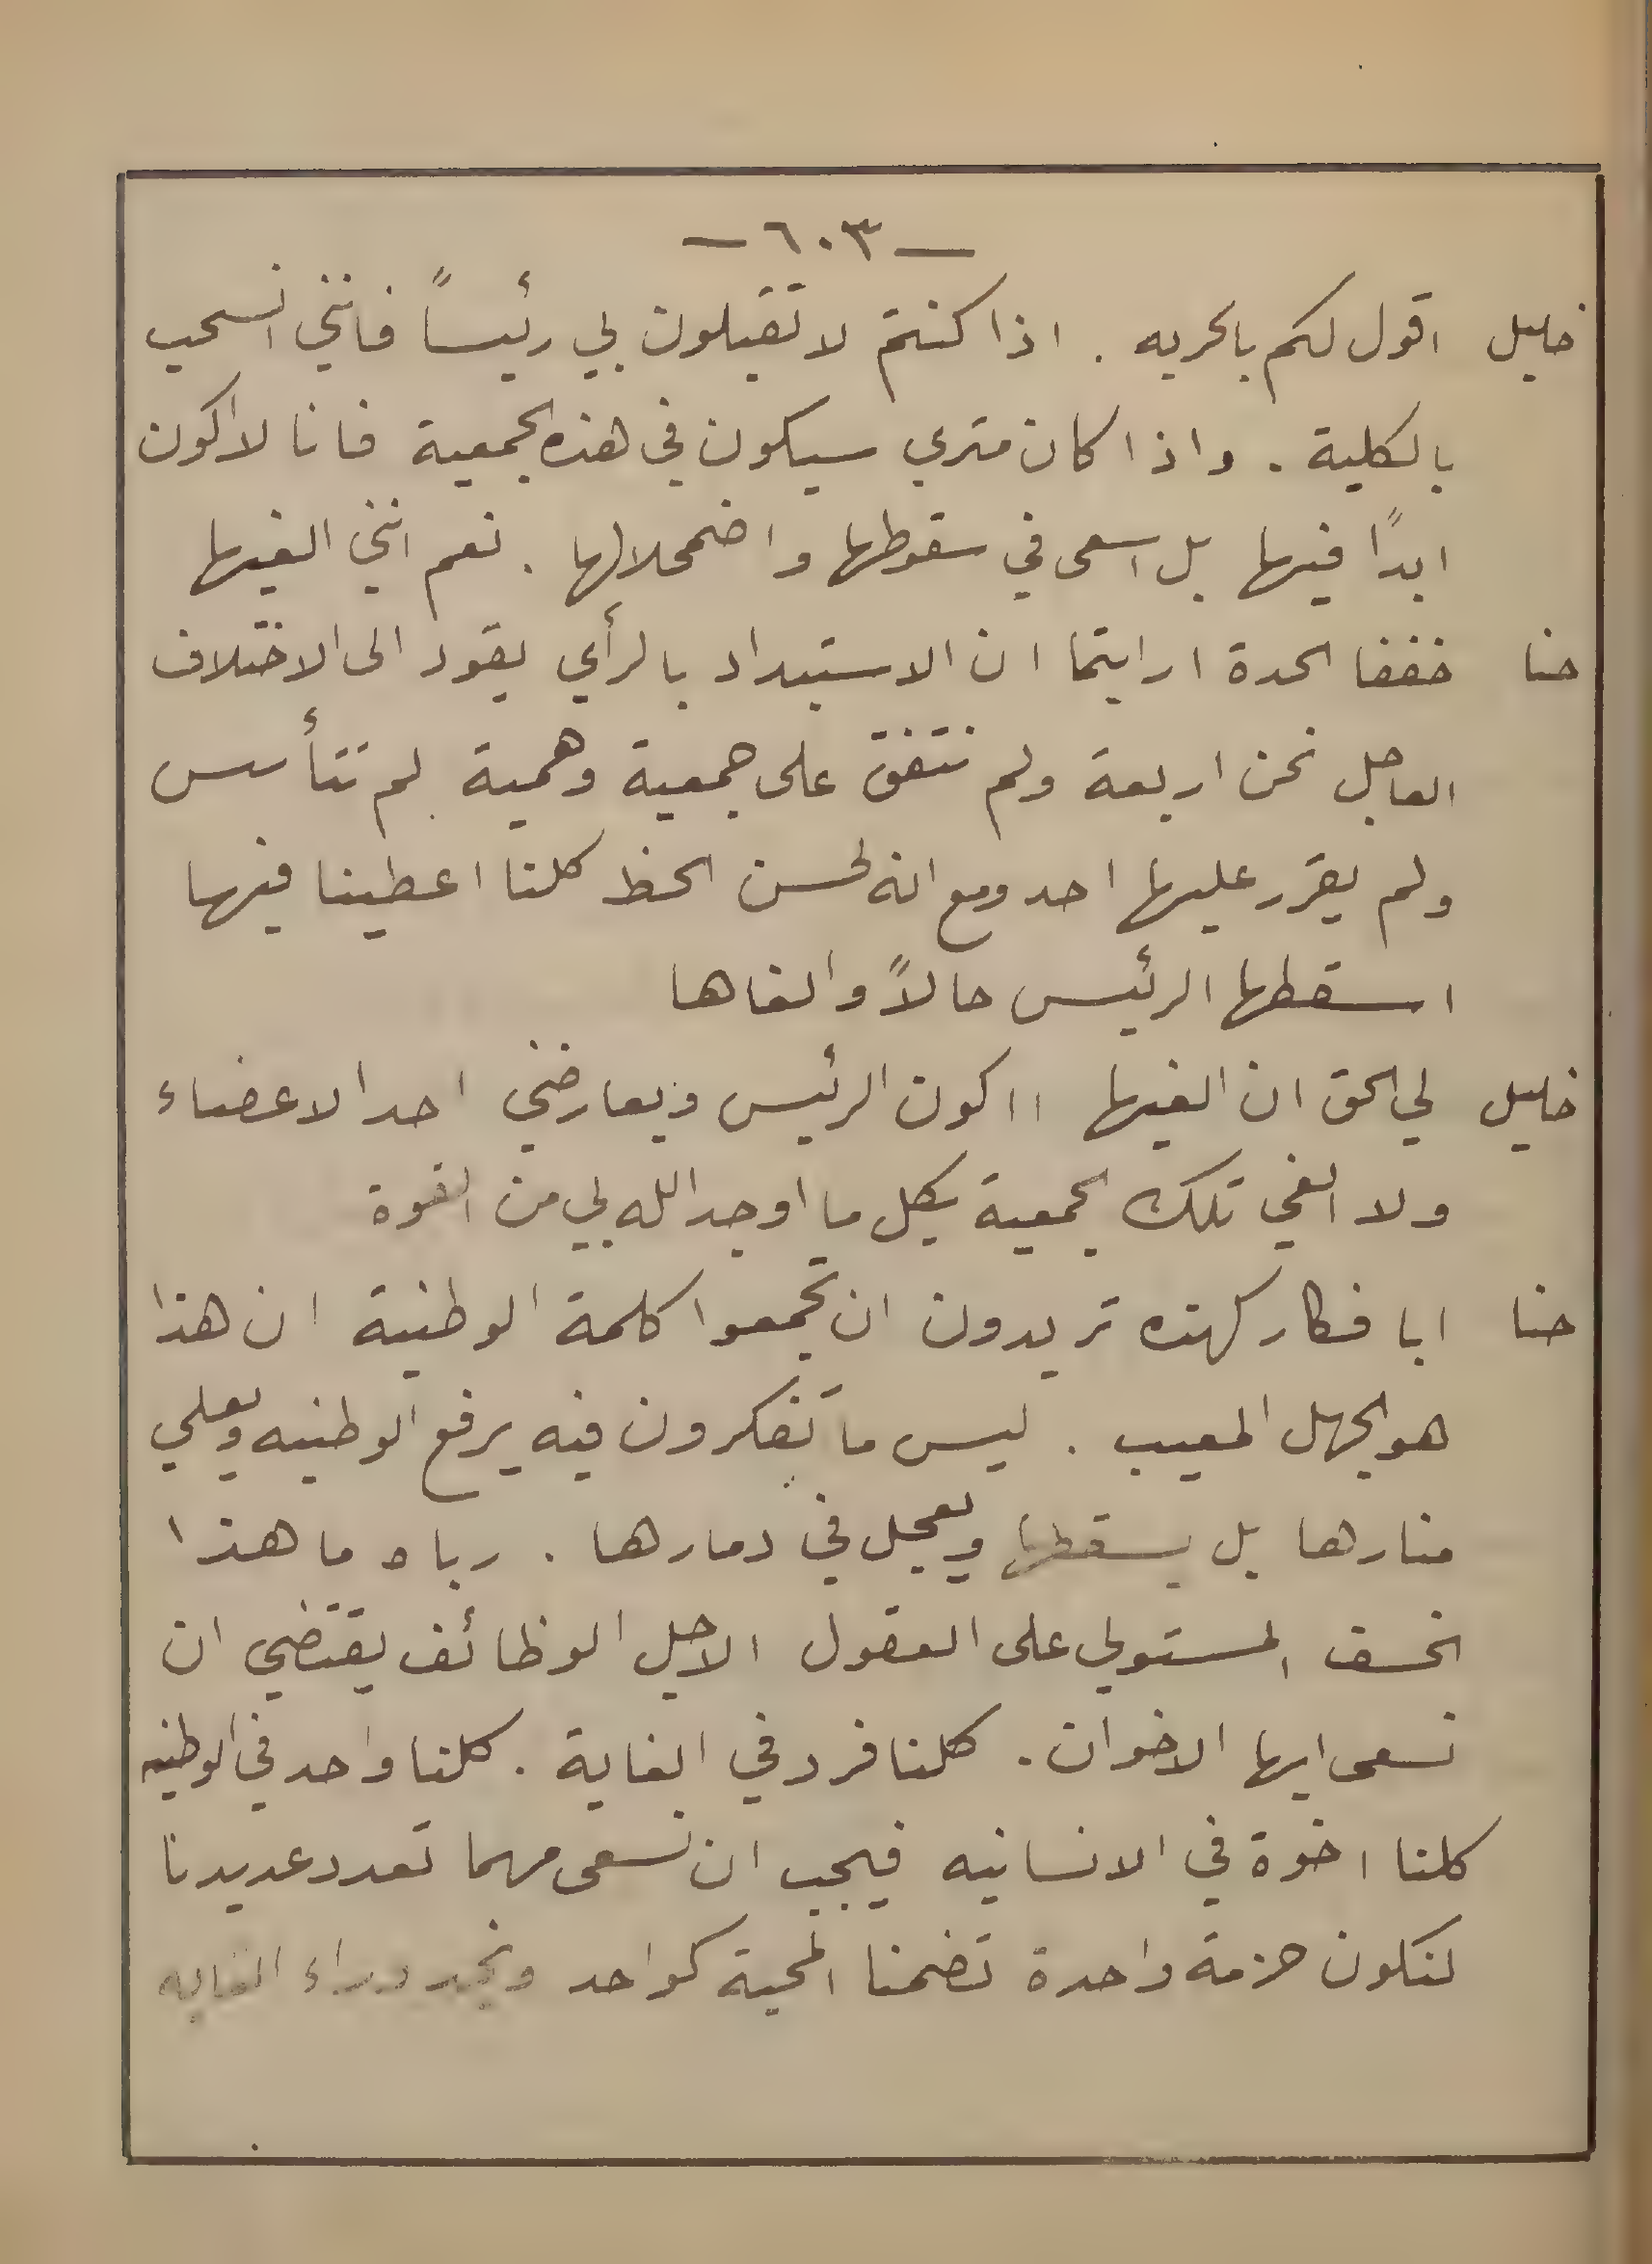 — ٦٠٣ —
خليل اقول لكم بالحريه . اذا كنتم لا تقبلون بي رئيساً فانني انسحب
بالكلية . واذا كان متري سيكون في هذه الجمعية فانا لا اكون
ابداً فيها بل اسعى في سقوطها واضمحلالها . نعم انني الغيها
حنا خففا الحدة ارايتما ان الاستبداد بالرأي يقود الى الاختلاف
العاجل نحن اربعة ولم نتفق على جمعية وهمية لم تتأسس
ولم يقرر عليها احد ومع انه لحسن الحظ كلنا اعطينا فيها
اسقطها الرئيس حالاً والغاها
خليل لي الحق ان الغيها ااكون الرئيس ويعارضني احد الاعضاء
ولا الغي تلك الجمعية بكل ما اوجد الله بي من القوة
حنا ابافكار كهذه تريدون ان تجمعوا كلمة الوطنية ان هذا
هو الجهل المعيب . ليس ما تفكرون فيه يرفع الوطنيه ويعلي
منارها بل يسقطها ويعجل في دمارها . رباه ما هذا
الخسف المستولي على العقول الاجل الوظائف يقتضي ان
نسعى ايها الاخوان . كلنا فرد في الغاية . كلنا واحد في الوطنيه
كلنا اخوة في الانسانيه فيجب ان نسعى مهما تعدد عديدنا
لنكون حزمة واحدة تضمنا المحبة كواحد ونجد وراء الغايه